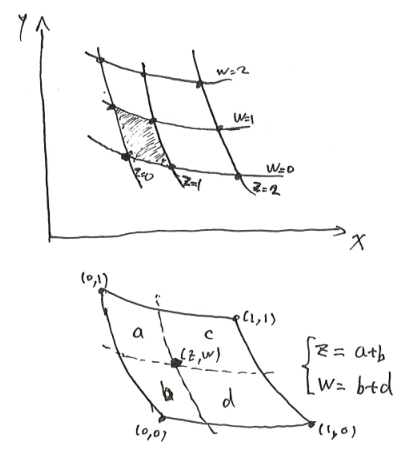 Y
w=2
w=1
w=0
z=0
z=1
z=2
X
(0,1)
(1,1)
a
c
(z,w)
b
d
(0,0)
(1,0)
z = a+b
w = b+d